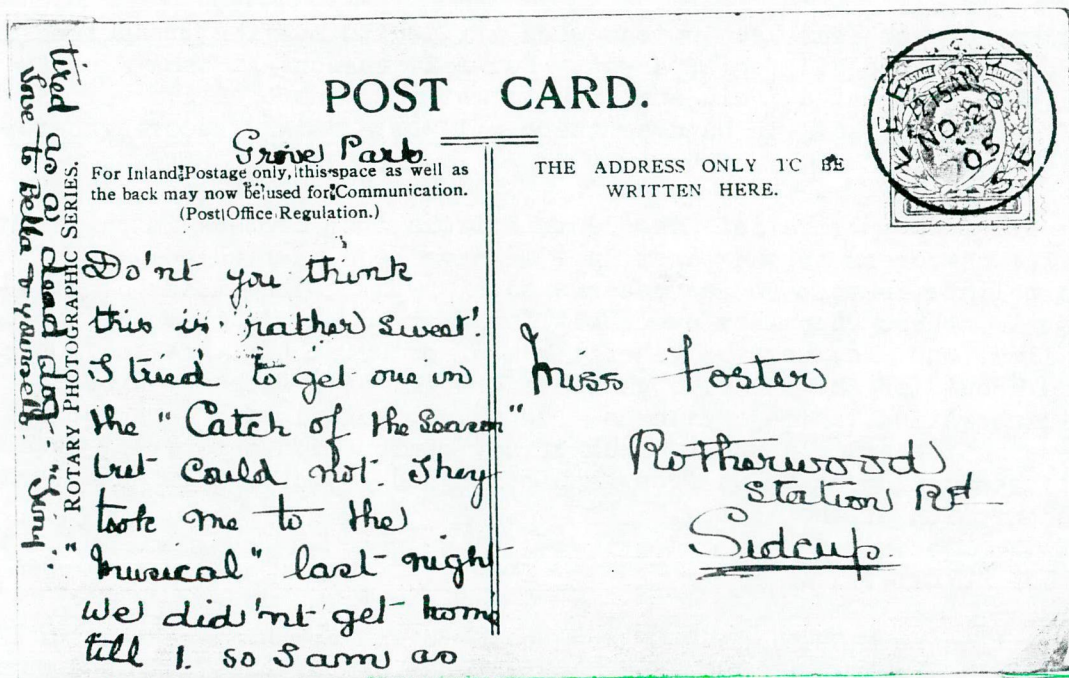 POST CARD.
Grove Park.
For Inland Postage only, this space as well as
the back may now be used for Communication.
(Post Office Regulation.)
THE ADDRESS ONLY TO BE
WRITTEN HERE.
LEE S.E.
12.15 AM
NO 20
05
Do'nt you think
this is rather sweet'
I tried to get one in
the "Catch of the Season"
but could not. They
took me to the
Musical" last night
We did'nt get home
till 1. so I am as
tired as a dead dog.
love to Bella & yourself.
ROTARY PHOTOGRAPHIC SERIES.
Miss Foster
Rotherwood
Station Rd
Sidcup.